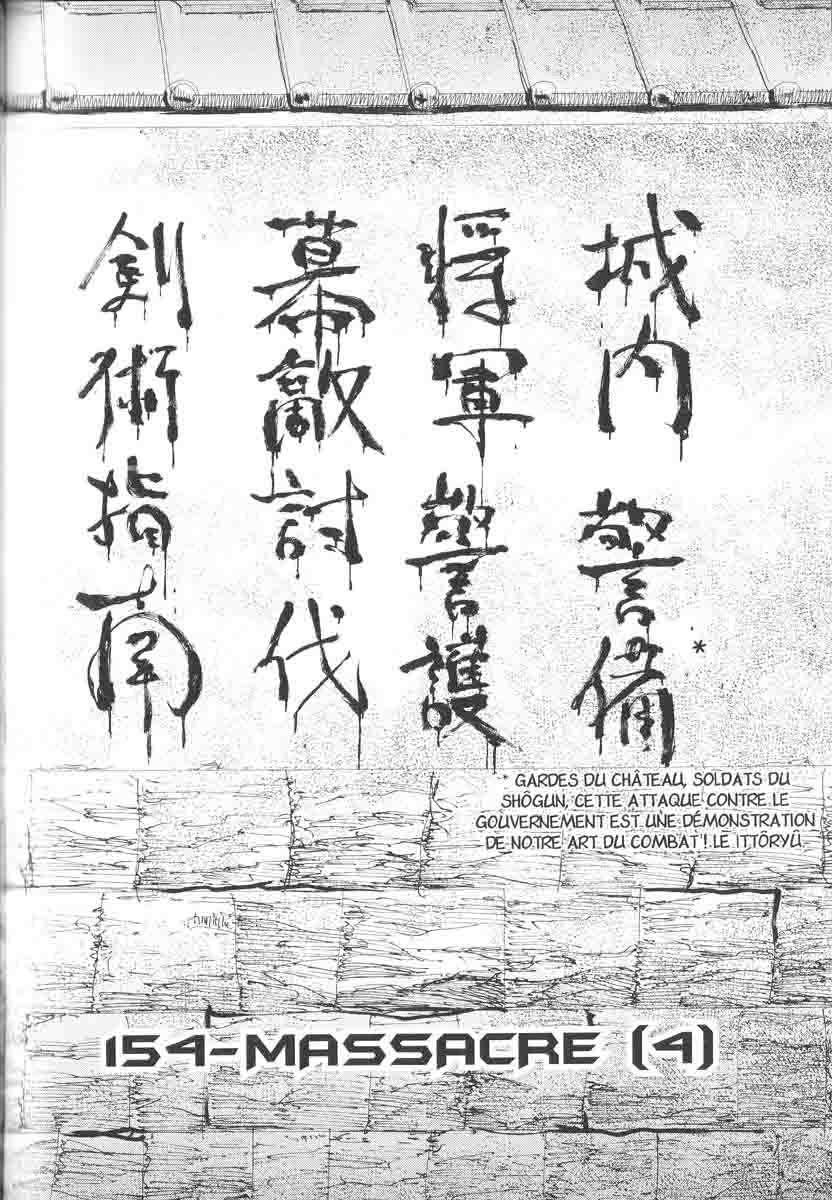 城内警備*
将軍警護
幕敵討代
剣術指南
* GARDES DU CHÂTEAU, SOLDATS DU
SHÔGUN, CETTE ATTAQUE CONTRE LE
GOUVERNEMENT EST UNE DÉMONSTRATION
DE NOTRE ART DU COMBAT ! LE ITTÔRYÛ
154-MASSACRE (4)